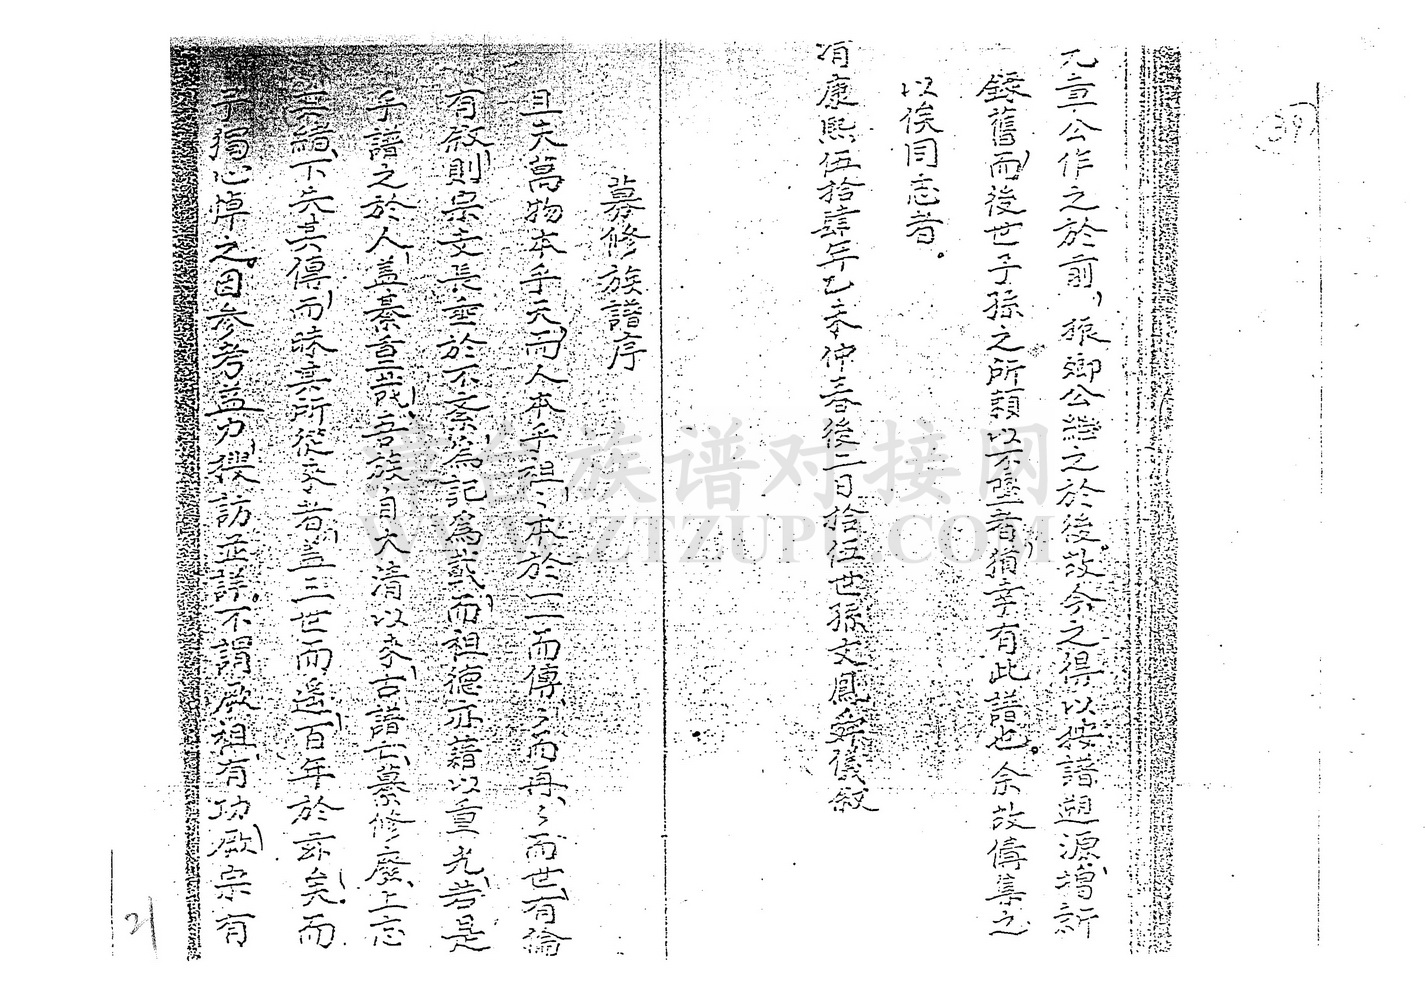 39
元章公作之於前，振鄉公繼之於後。故今之得以按譜遡源，增新
錄舊，而後世子孫之所賴以不墜者，猶幸有此譜也。余故傳集之
以俟同志者。
康熙伍拾肆年乙未仲春後二日拾伍世孫文鳳舜儀敘
募修族譜序
且夫萬物本乎天，而人本乎祖，〻本於一，一而傳，〻而再，〻而世，有倫
有敘，則宗支長垂於不紊，為記為載，而祖德亦藉以重光，若是
乎譜之於人，蓋綦重哉，吾族自大清以來，古譜亡，募修廢，上忘
其緒，下失其傳，而昧其所從來者，蓋三世而遙，百年於茲矣。而
予獨心悼之。因參考益力，採訪並詳。不謂厥祖有功，厥宗有
21
津台族谱对接网
WWW.ZTZUPU.COM